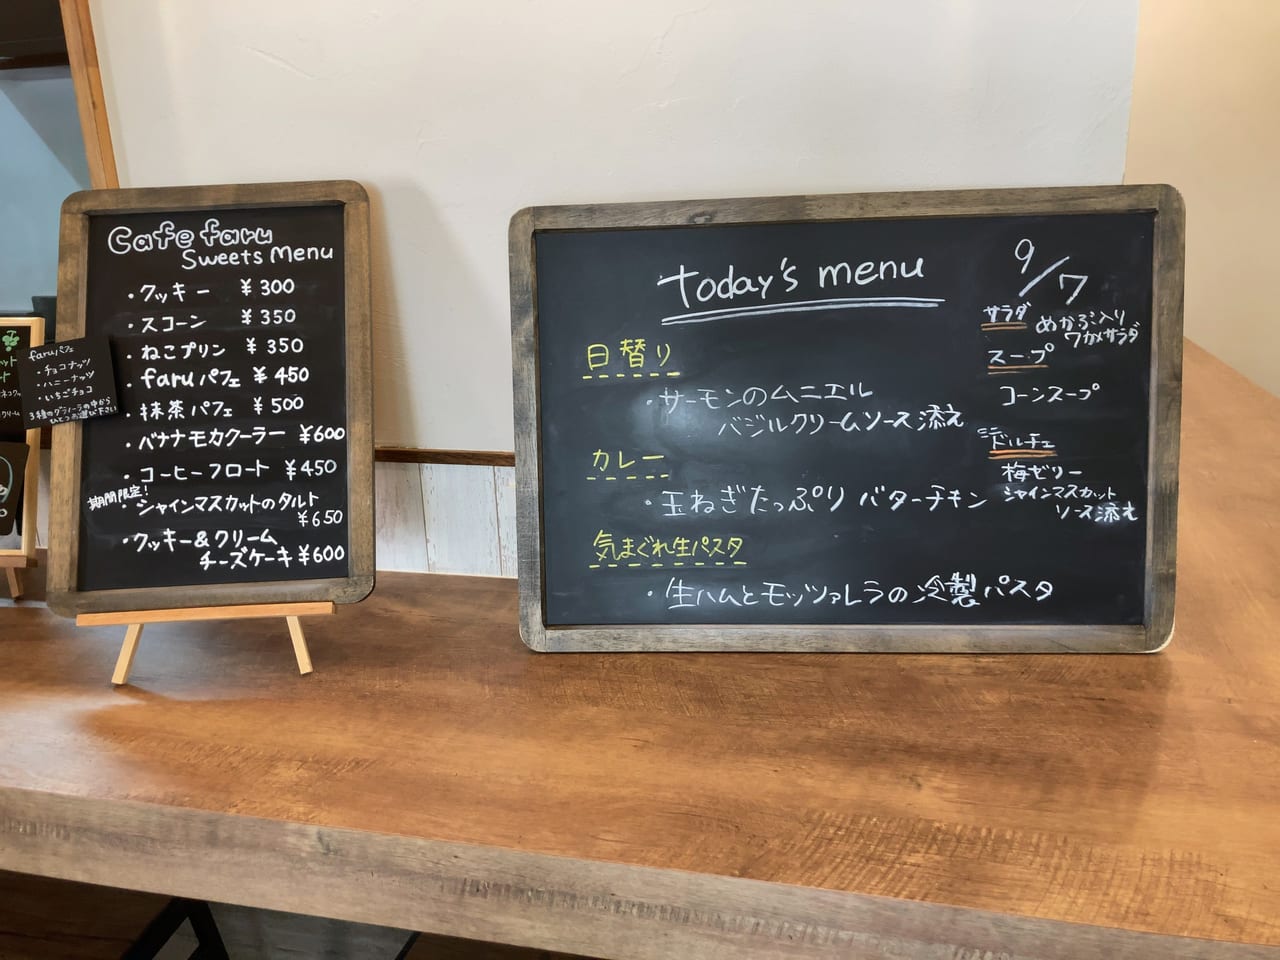 Cafe faru
Sweets Menu
・クッキー ¥300
・スコーン ¥350
・ねこプリン ¥350
・faruパフェ ¥450
・抹茶パフェ ¥500
・バナナモカクーラー ¥600
・コーヒーフロート ¥450
期間限定!
・シャインマスカットのタルト
¥650
・クッキー&クリーム
チーズケーキ ¥600
faruパフェ
・チョコナッツ
・ハニーナッツ
・いちごチョコ
3種のグラノーラの中から
ひとつお選び下さい
Today's menu
9/7
日替り
・サーモンのムニエル
バジルクリームソース添え
カレー
・玉ねぎたっぷり バターチキン
気まぐれ生パスタ
・生ハムとモッツァレラの冷製パスタ
サラダ
めかぶ入り
ワカメサラダ
スープ
コーンスープ
ミニドルチェ
梅ゼリー
シャインマスカット
ソース添え